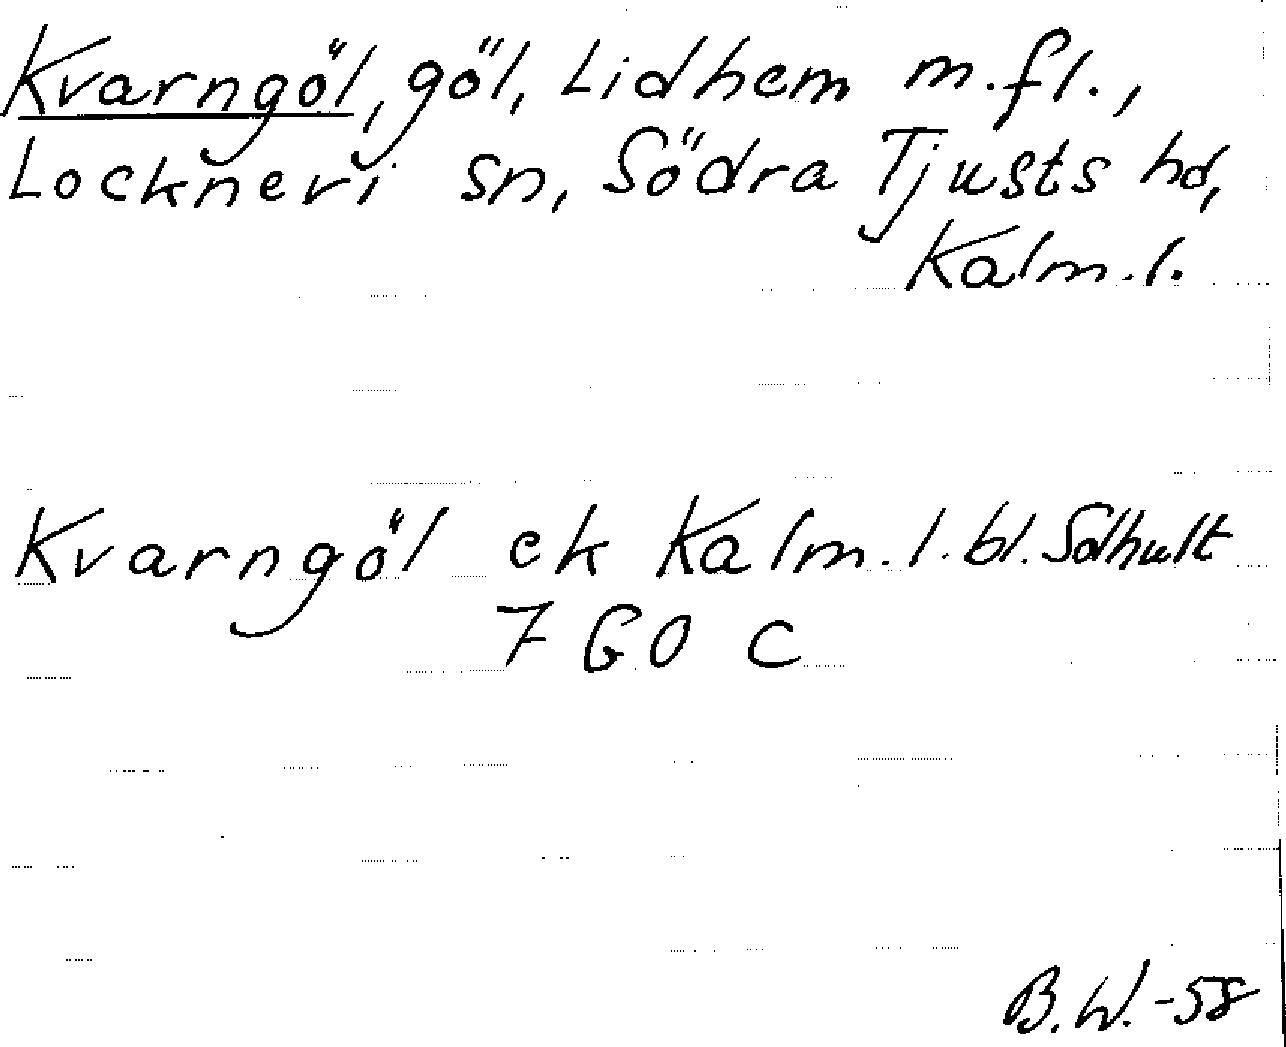 Kvarngöl, göl, Lidhem m.fl.,
Lockneri sn, Södra Tjusts hd,
Kalm.l.
Kvarngöl ek Kalm.l. bl. Solhult
7 G O C
B.W.-58